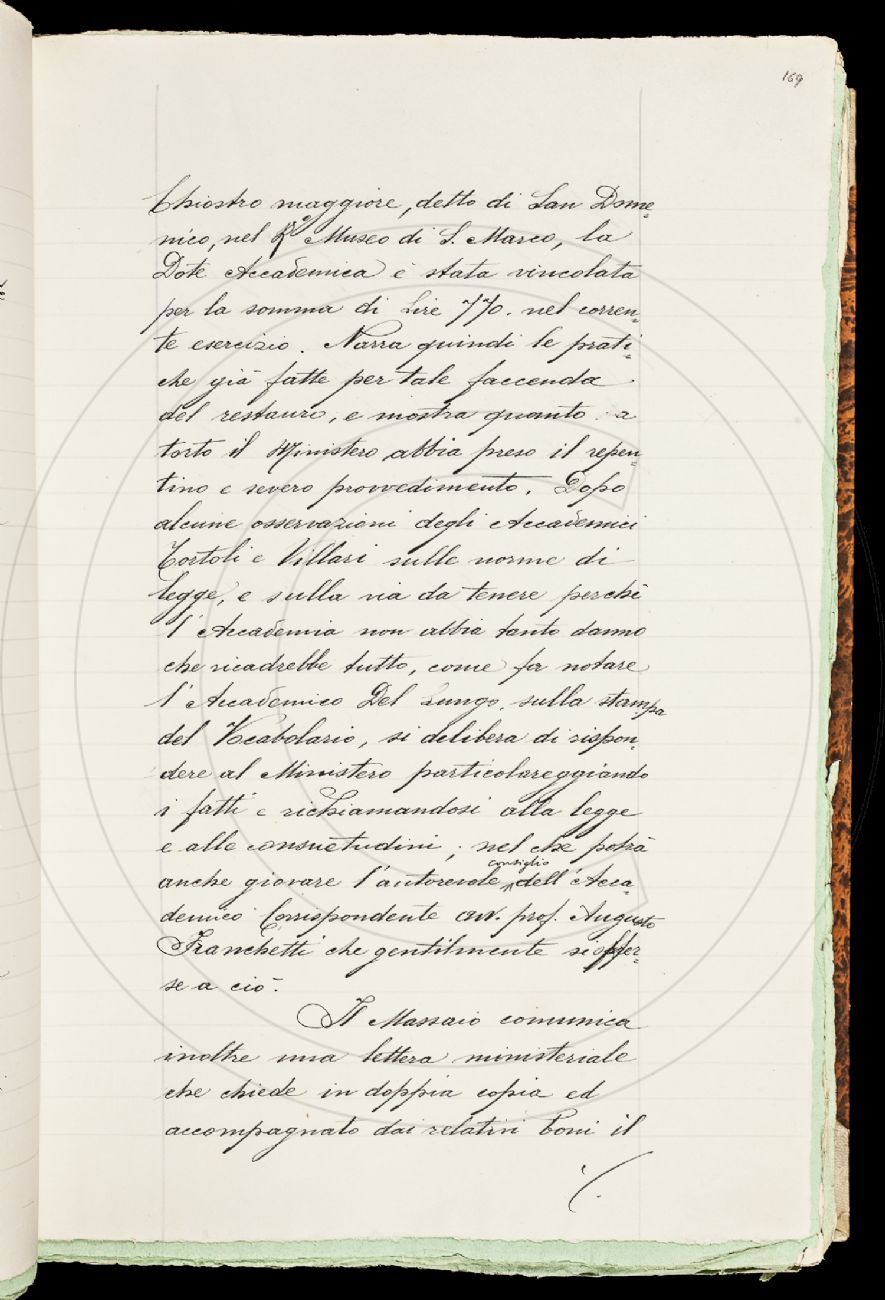 169
Chiostro maggiore, detto di San Dome=
nico, nel R.o Museo di S. Marco, la
Dote Accademica è stata vincolata
per la somma di Lire 770. nel corren=
te esercizio. Narra quindi le prati=
che già fatte per tale faccenda
del restauro, e mostra quanto a
torto il Ministero abbia preso il repen=
tino e severo provvedimento. Dopo
alcune osservazioni degli Accademici
Tortoli e Villari sulle norme di
legge, e sulla via da tenere perchè
l'Accademia non abbia tanto danno
che ricadrebbe tutto, come fa notare
l'Accademico Del Lungo, sulla stampa
del Vocabolario, si delibera di rispon=
dere al Ministero particolareggiando
i fatti e richiamandosi alla legge
e alle consuetudini; nel che potrà
anche giovare l'autorevole consiglio dell'Acca=
demico Corrispondente avv. prof. Augusto
Franchetti che gentilmente si offer=
se a ciò.
Il Massaio comunica
inoltre una lettera ministeriale
che chiede in doppia copia ed
accompagnato dai relativi boni il